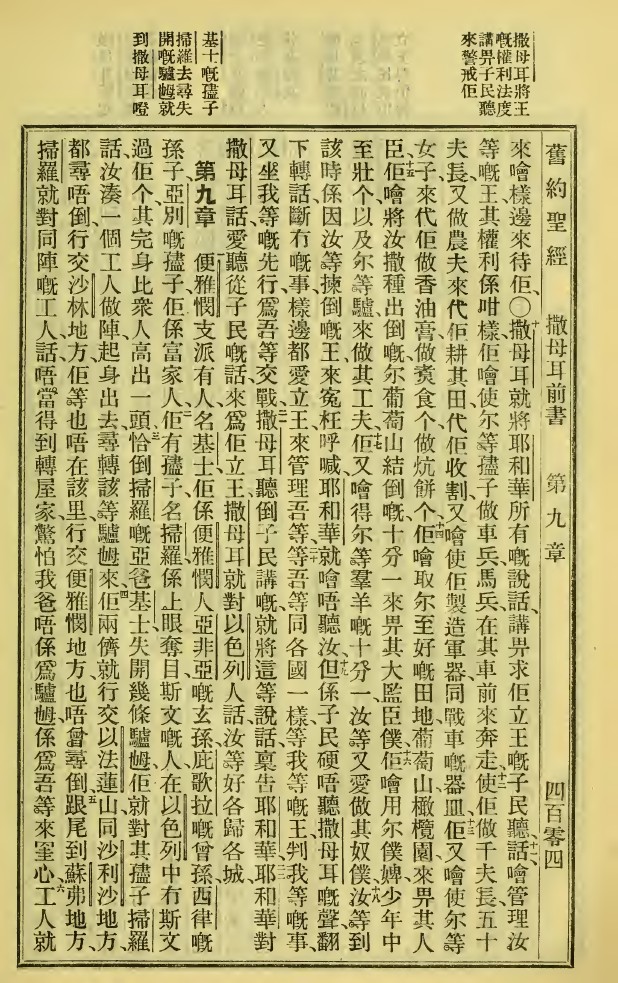 撒母耳將王
嘅權利法度
講畀子民聽
來警戒佢
基士嘅㜽子
掃羅去尋失
開嘅驢㜷就
到撒母耳嶝
舊約聖經 撒母耳前書 第九章 四百零四
來噲樣邊來待佢、〇十撒母耳就將耶和華所有嘅說話、講畀求佢立王嘅子民聽、十一話噲管理汝
等嘅王、其權利係咁樣、佢噲使尔等㜽子做車兵、馬兵、在其車前來奔走、十二使佢做千夫長、五十
夫長、又做農夫來代佢耕其田、代佢收割、又噲使佢製造軍器、同戰車嘅器皿、十三佢又噲使尔等
女子來代佢做香油膏、做煑食个、做炕餅个、十四佢噲取尔至好嘅田地、葡萄山、橄欖園、來畀其人
臣、十五佢噲將汝撒種出倒嘅、尔葡萄山結倒嘅、十分一來畀其大監臣僕、十六佢噲用尔僕婢、少年中
至壯个、以及尔等驢、來做其工夫、十七佢又噲得尔等羣羊嘅十分一、汝等又愛做其奴僕、十八汝等到
該時、係因汝等揀倒嘅王來寃枉呼喊、耶和華就噲唔聽汝、十九但係子民硬唔聽撒母耳嘅聲、翻
下轉話、斷冇嘅事、樣邊都愛立王來管理吾等、二十等吾等同各國一樣、等我等嘅王判我等嘅事、
又坐我等嘅先行、爲吾等交戰、二一撒母耳聽倒子民講嘅、就將這等說話禀告耶和華、二二耶和華對
撒母耳話、愛聽從子民嘅話、來爲佢立王、撒母耳就對以色列人話、汝等好各歸各城、
第九章 一便雅憫支派有人名基士、佢係便雅憫人、亞非亞嘅玄孫、庇歌拉嘅曾孫、西律嘅
孫子、亞別嘅㜽子、佢係富家人、二佢有㜽子名掃羅、係上眼奪目斯文嘅人、在以色列中冇斯文
過佢个、其完身比衆人高出一頭、三恰倒掃羅嘅亞爸基士、失開幾條驢㜷、佢就對其㜽子掃羅
話、汝湊一個工人做陣、起身出去、尋轉該等驢㜷來、四佢兩儕就行交以法蓮山、同沙利沙地方、
都尋唔倒、行交沙林地方、佢等也唔在該里、行交便雅憫地方、也唔曾尋倒、五跟尾到蘇弗地方、
掃羅就對同陣嘅工人話、唔當得到轉屋家、驚怕我爸唔係爲驢㜷、係爲吾等來罣心、六工人就